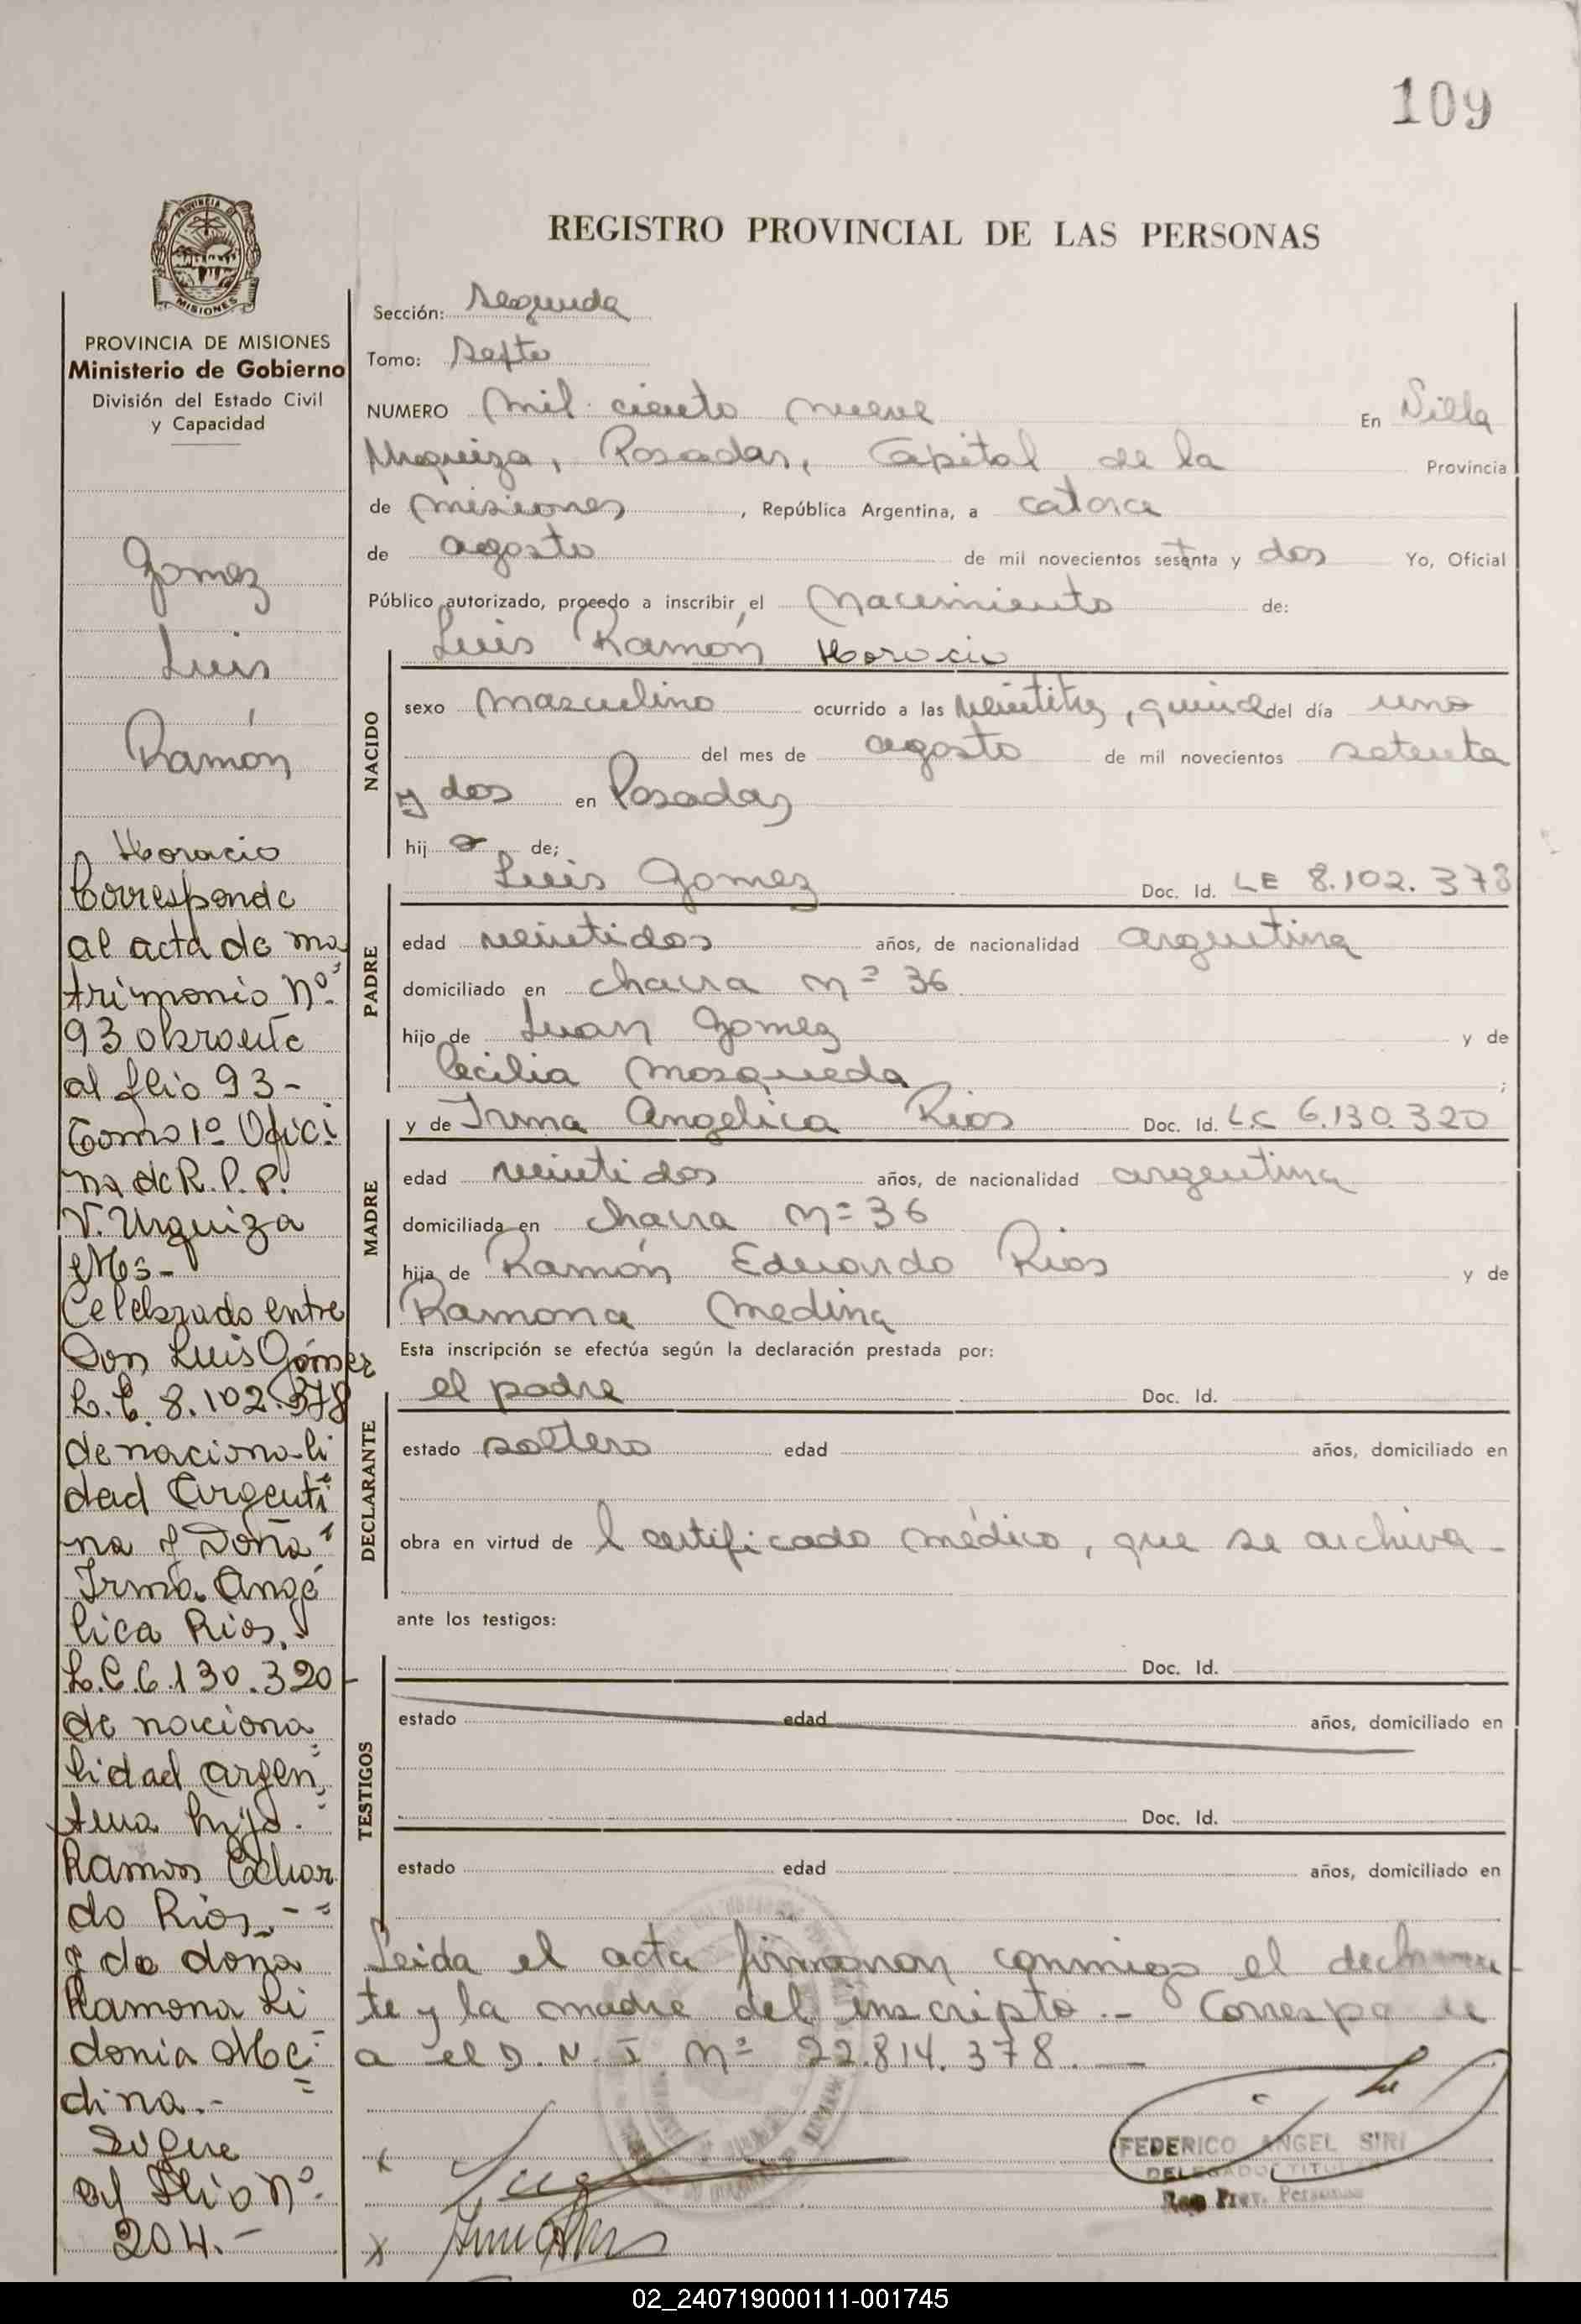 109
REGISTRO PROVINCIAL DE LAS PERSONAS
PROVINCIA DE MISIONES
Ministerio de Gobierno
División del Estado Civil
y Capacidad
Gomez
Luis
Ramón
Horacio
Corresponde
al acta de ma
trimonio Nº
93 obrante
al flio 93-
Tomo 1º Ofici
na de R.P.P.
V. Urquiza
Ms-
Celebrado entre
Don Luis Gómez
L.E. 8.102.378
de nacionali
dad Argenti
na y Doña
Irma Angé
lica Rios.
L.C. 6.130.320-
de naciona
lidad argen
tina hija
Ramon Eduar
do Rios.-
y de doña
Ramona Li
donia Me
dina.-
Sigue
al flio Nº
204.-
Sección: Segunda
Tomo: Septo
NUMERO mil ciento nueve En Villa
Urquiza, Posadas, Capital de la Provincia
de misiones, República Argentina, a catorce
de agosto de mil novecientos setenta y dos Yo, Oficial
Público autorizado, procedo a inscribir el Nacimiento de:
Luis Ramón Horacio
NACIDO
sexo masculino ocurrido a las veintitres, quince del día uno
del mes de agosto de mil novecientos setenta
y dos en Posadas
hijo de;
PADRE
Luis Gomez Doc. Id. LE 8.102.378
edad veintidos años, de nacionalidad argentina
domiciliado en chacra nº 36
hijo de Juan Gomez y de
Cecilia Mosqueda;
MADRE
y de Irma Angelica Rios Doc. Id. L.C 6.130.320
edad veintidos años, de nacionalidad argentina
domiciliada en chacra nº 36
hija de Ramón Eduardo Rios y de
Ramona Medina
Esta inscripción se efectúa según la declaración prestada por:
DECLARANTE
el padre Doc. Id.
estado soltero edad años, domiciliado en
obra en virtud de l certificado médico, que se archiva-
ante los testigos:
TESTIGOS
Doc. Id.
estado edad años, domiciliado en
Doc. Id.
estado edad años, domiciliado en
Leida el acta firmaron conmigo el declaran
te y la madre del inscripto.- Corresponde
a el D.N.I Nº 22.814.378.—
FEDERICO ANGEL SIRI
DELEGADO TITULAR
Reg Prov. Personas
02_240719000111-001745